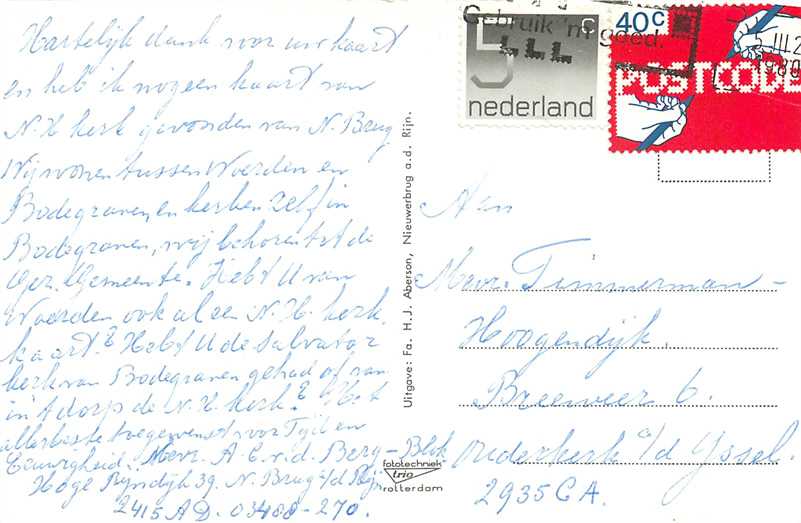 Hartelijk dank voor uw kaart
en heb ik nog een kaart van
N.H kerk gevonden van N. Brug
Wij wonen tussen Woerden en
Bodegraven en kerken zelf in
Bodegraven, wij behoren tot de
Ger. Gemeente. Hebt U van
Woerden ook al een N.H. kerk
kaart? Hebt U de Salvator
kerk van Bodegraven gehad of van
in 't dorp de N.H. kerk? 't Het
allerbeste toegewenst voor Tijd en
Eeuwigheid. Mevr. A.C.v.d. Berg-Blok
Hoge Rijndijk 39. N. Brug a/d Rijn
2415 AD. 03488-270.
Uitgave: Fa. H.J. Aberson, Nieuwerbrug a.d. Rijn.
fototechniek
trio
rotterdam
Gebruik 'm goed.
5 c
nederland
40c
POSTCODE
III.2
1980
Aan
Mevr. Timmerman-
Hoogendijk.
Breeweer 6.
Ouderkerk a/d Yssel.
2935 CA.